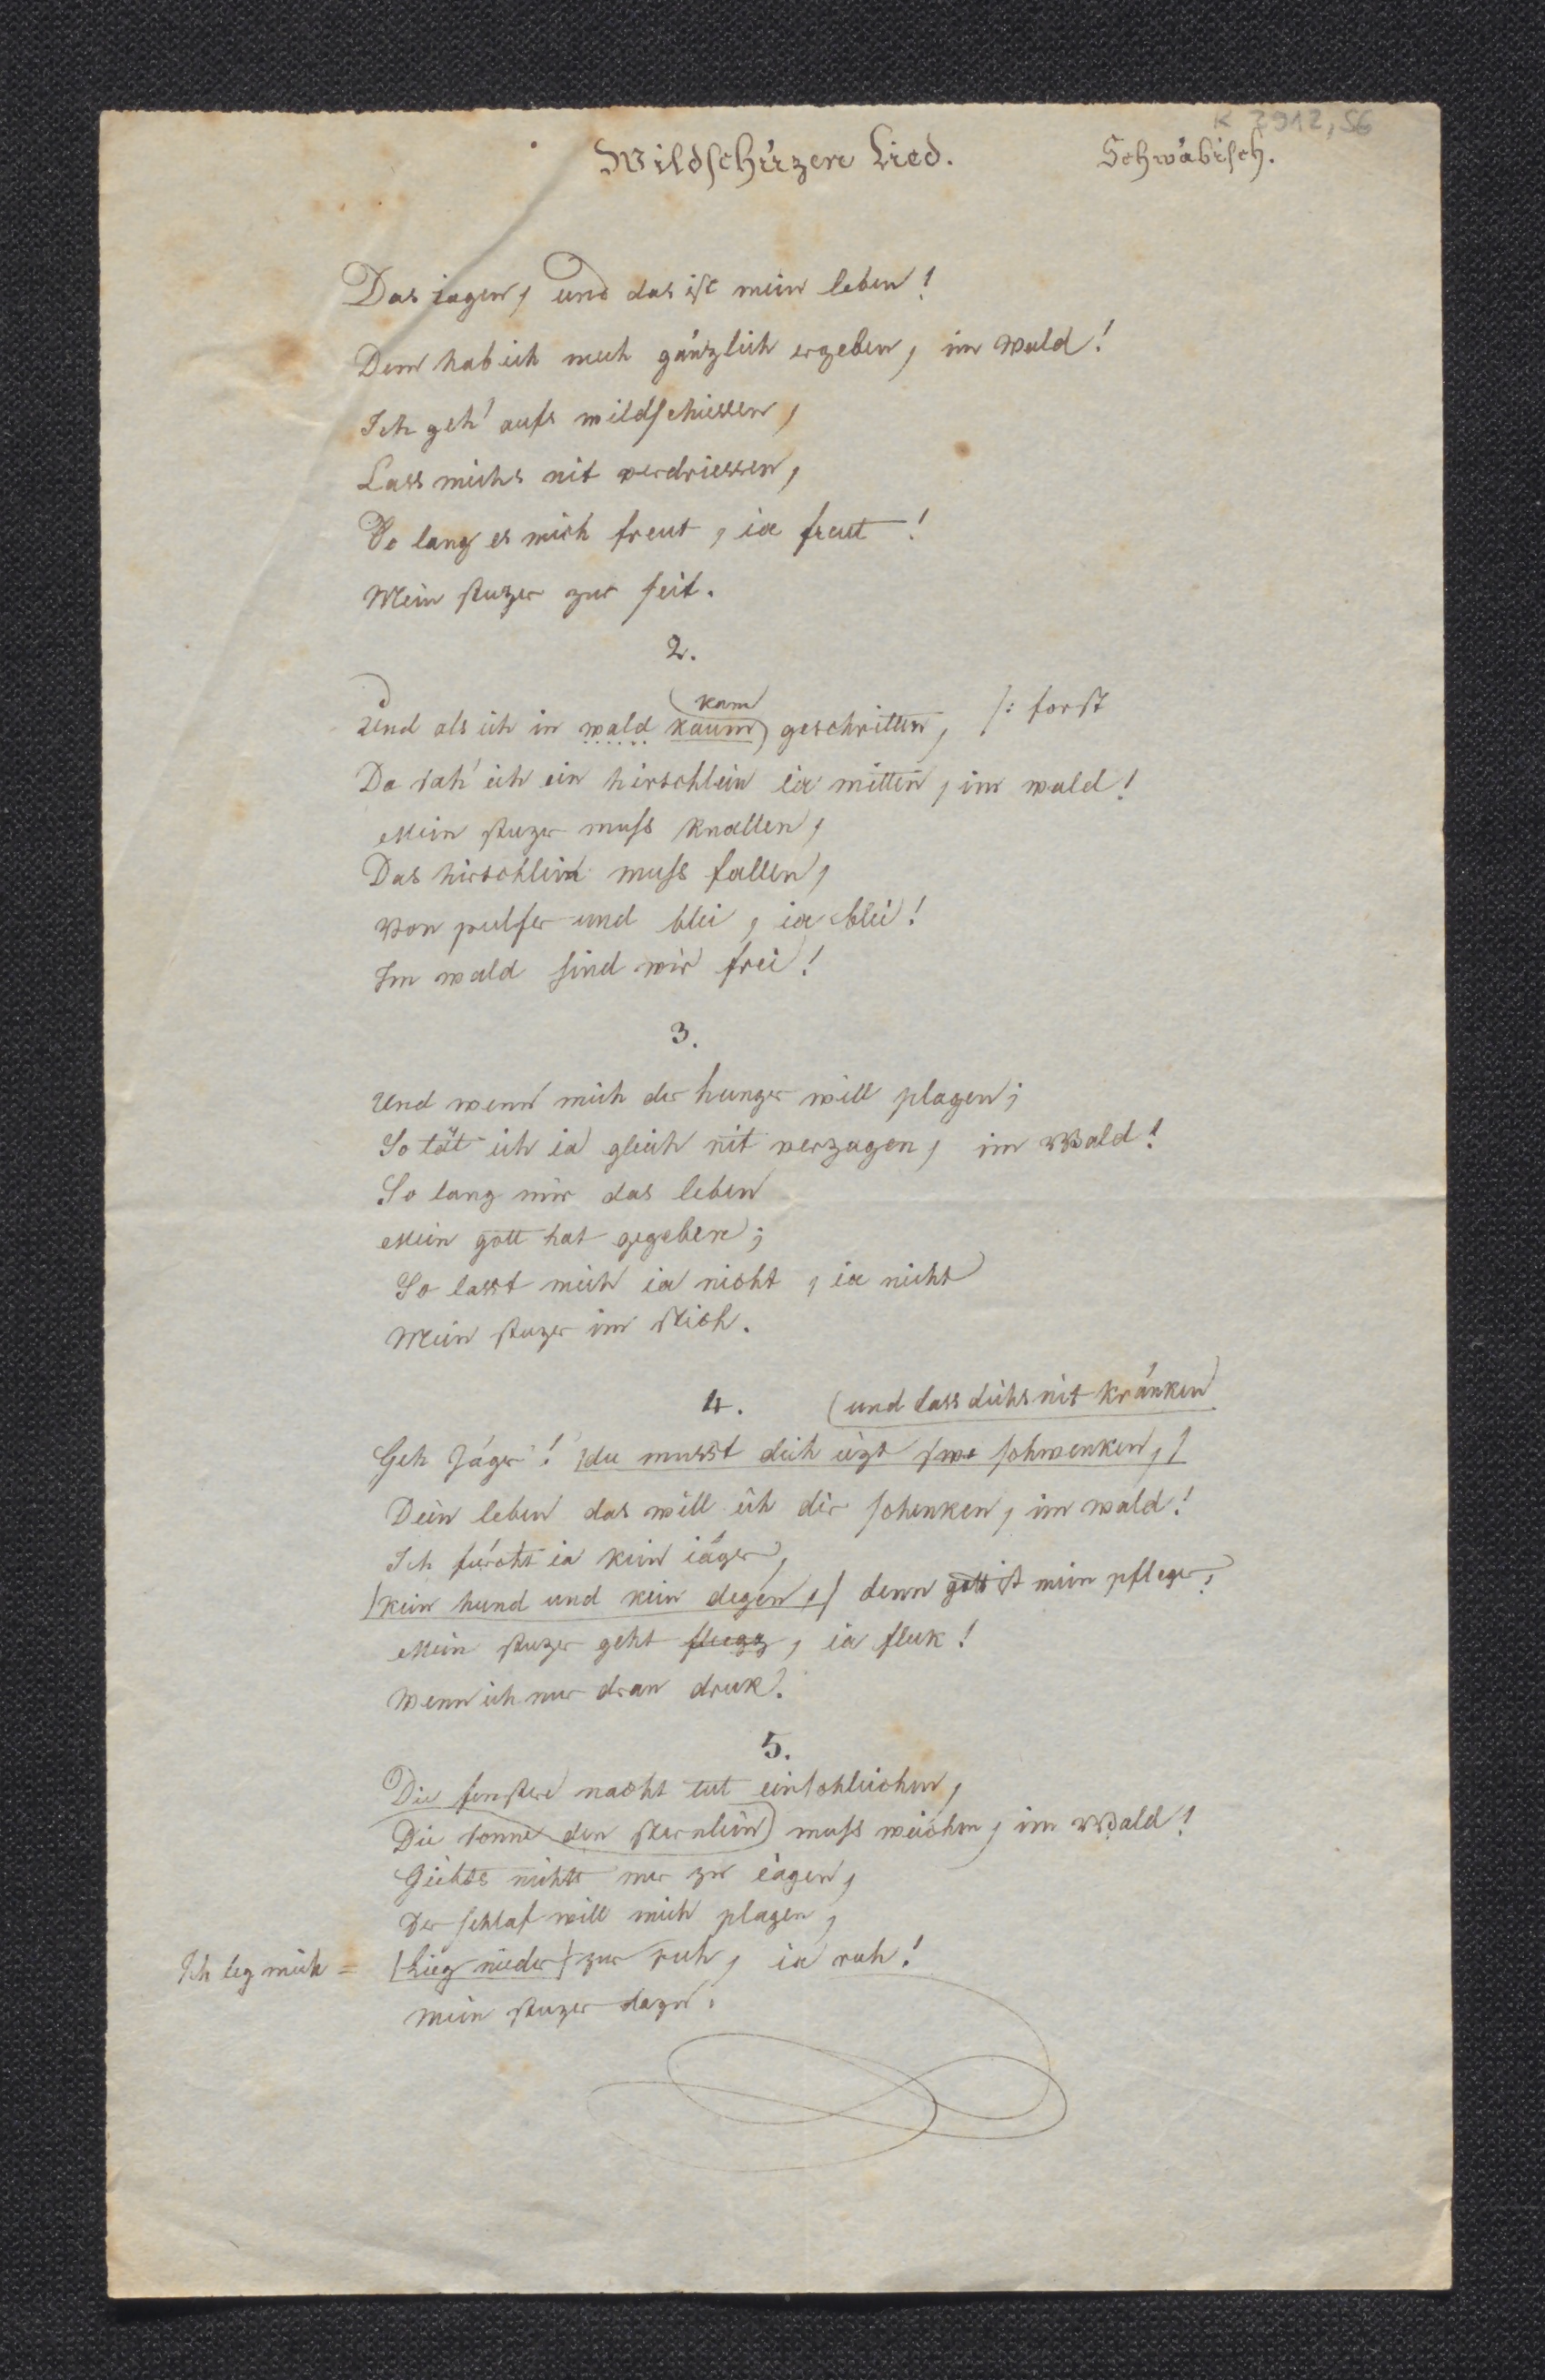 K 2912, 56
Wildschüzen Lied. Schwäbisch.
Das iagen, und das ist mein leben!
Dem hab ich mich gänzlich ergeben, im Wald!
Ich geh' aufs wildschiessen,
Lass michs nit verdriessen,
So lang es mich freut, ia freut!
Mein stuzer zur seit.
2.
kam
Und als ich in wald kaum geschritten, /: forst
Da sah' ich ein hirschlein ia mitten, im wald!
Mein stuzer muss knallen,
Das hirschlein muss fallen,
Von pulfer und blei, ia blei!
Im wald sind wir frei!
3.
Und wenn mich der hunger will plagen;
So tät ich ia gleich nit verzagen, im Wald!
So lang mir das leben
Mein gott hat gegeben;
So lasst mich ia nicht, ia nicht
Mein stuzer im stich.
4. (und lass dichs nit kränken
Geh Jäger! /du musst dich iezt schwenken,/
Dein leben das will ich dir schenken, im wald!
Ich fürcht ia kein iäger,
/kein hund und kein degen,/ denn gott ist mein pfleger;
Mein stuzer geht flugg, ia fluk!
Wenn ich nur dran druk.
5.
Die finstere nacht tut einschleichen,
Die sonne den sternlein muss weichen, im Wald!
Giebts nichts mer zu iagen,
Der schlaf will mich plagen,
Ich leg mich = /Lieg nieder/ zur ruh, ia ruh!
Mein stuzer dazu.